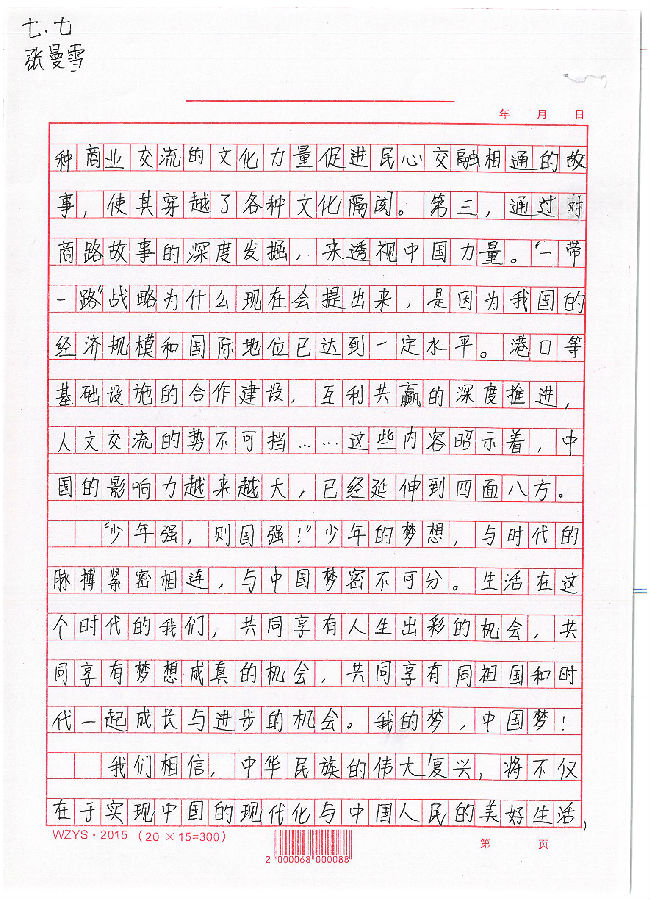 七.七
张曼雪
年 月 日
种商业交流的文化力量促进民心交融相通的故
事，使其穿越了各种文化隔阂。第三，通过对
商路故事的深度发掘，来透视中国力量。“一带
一路”战略为什么现在会提出来，是因为我国的
经济规模和国际地位已达到一定水平。港口等
基础设施的合作建设，互利共赢的深度推进，
人文交流的势不可挡……这些内容昭示着，中
国的影响力越来越大，已经延伸到四面八方。
“少年强，则国强！”少年的梦想，与时代的
脉搏紧密相连，与中国梦密不可分。生活在这
个时代的我们，共同享有人生出彩的机会，共
同享有梦想成真的机会，共同享有同祖国和时
代一起成长与进步的机会。我的梦，中国梦！
我们相信，中华民族的伟大复兴，将不仅
在于实现中国的现代化与中国人民的美好生活，
WZYS·2015（20×15=300） 第 页
2 000068 000088